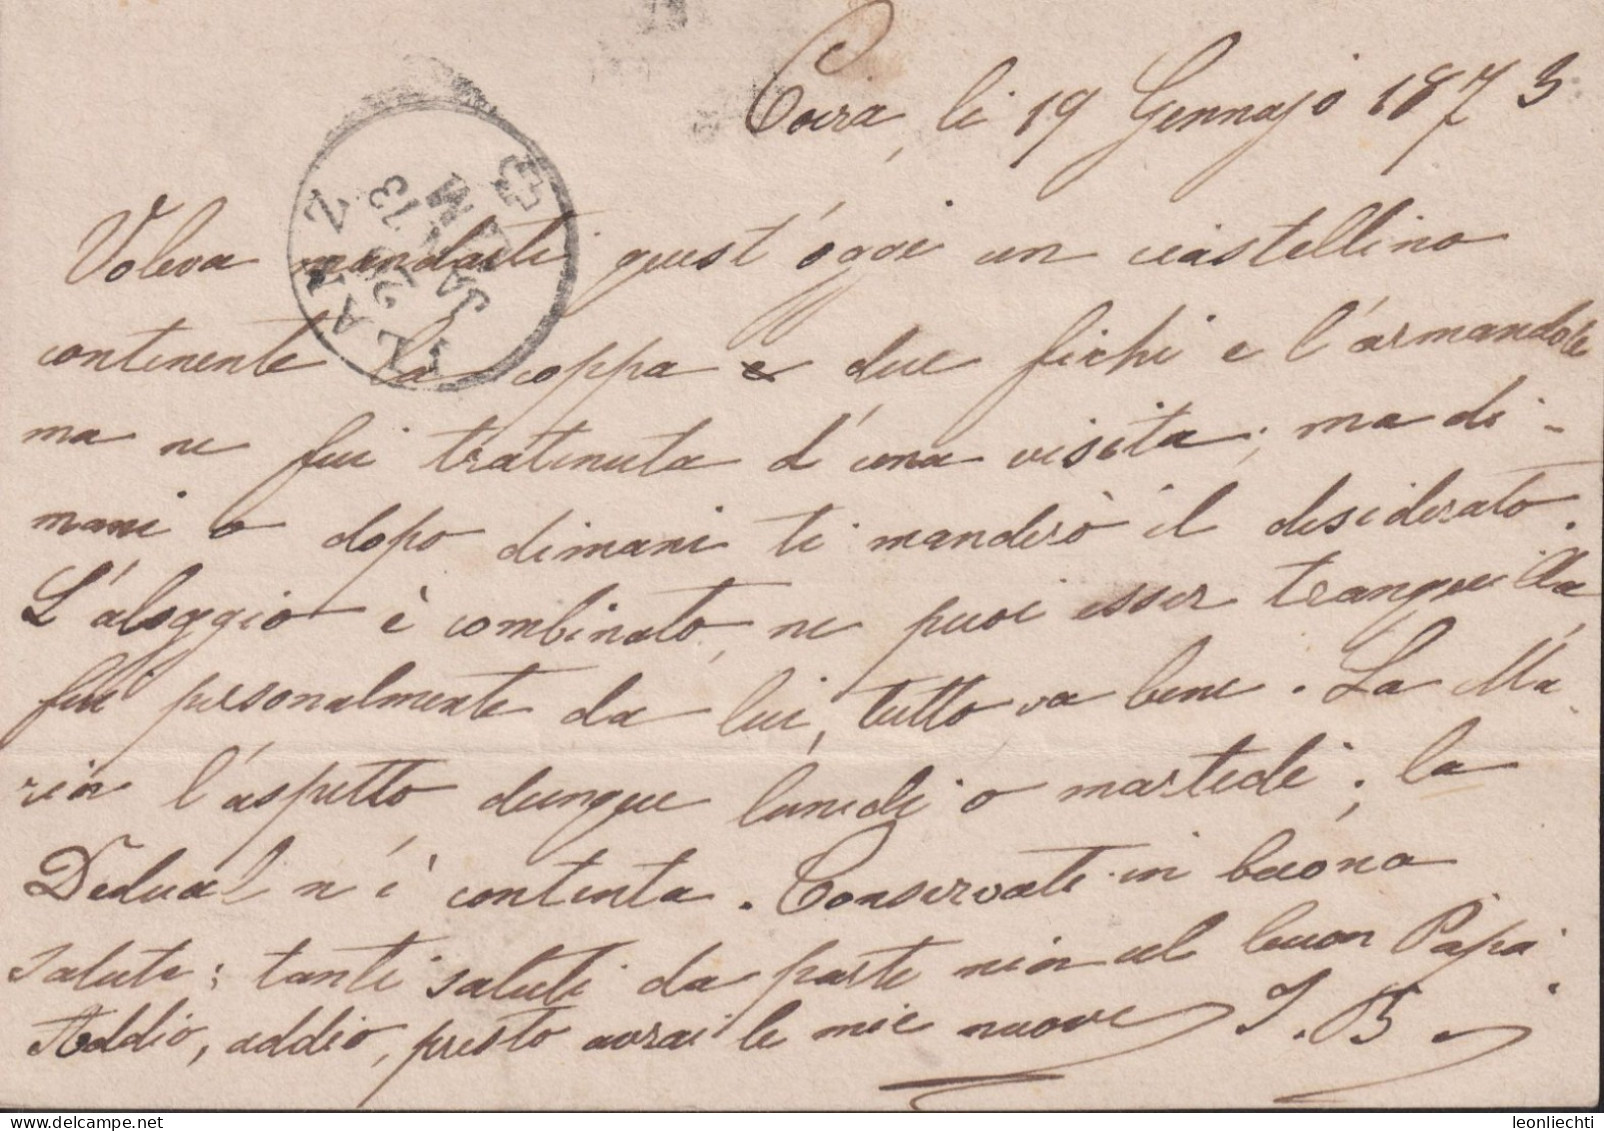 Coira, li 19 Gennajo 1873
Voleva mandarti quest'oggi un ciastellino
continente la coppa e due fichi e l'armandole
ma ne fui tratinuta d'una visita; ma di-
mani o dopo dimani ti manderò il desiderato.
L'aloggio è combinato, ne puoi esser tranquilla,
fui personalmente da lui, tutto va bene. La Ma-
rin l'aspetto dunque lunedi o martedi; la
Dedual n'è contenta. Conservati in buona
salute; tanti saluti da parte min al buon Papa.
Addio, addio, presto avrai le mie nuove J. B.
ILANZ
20 JAN 73
leonliechti